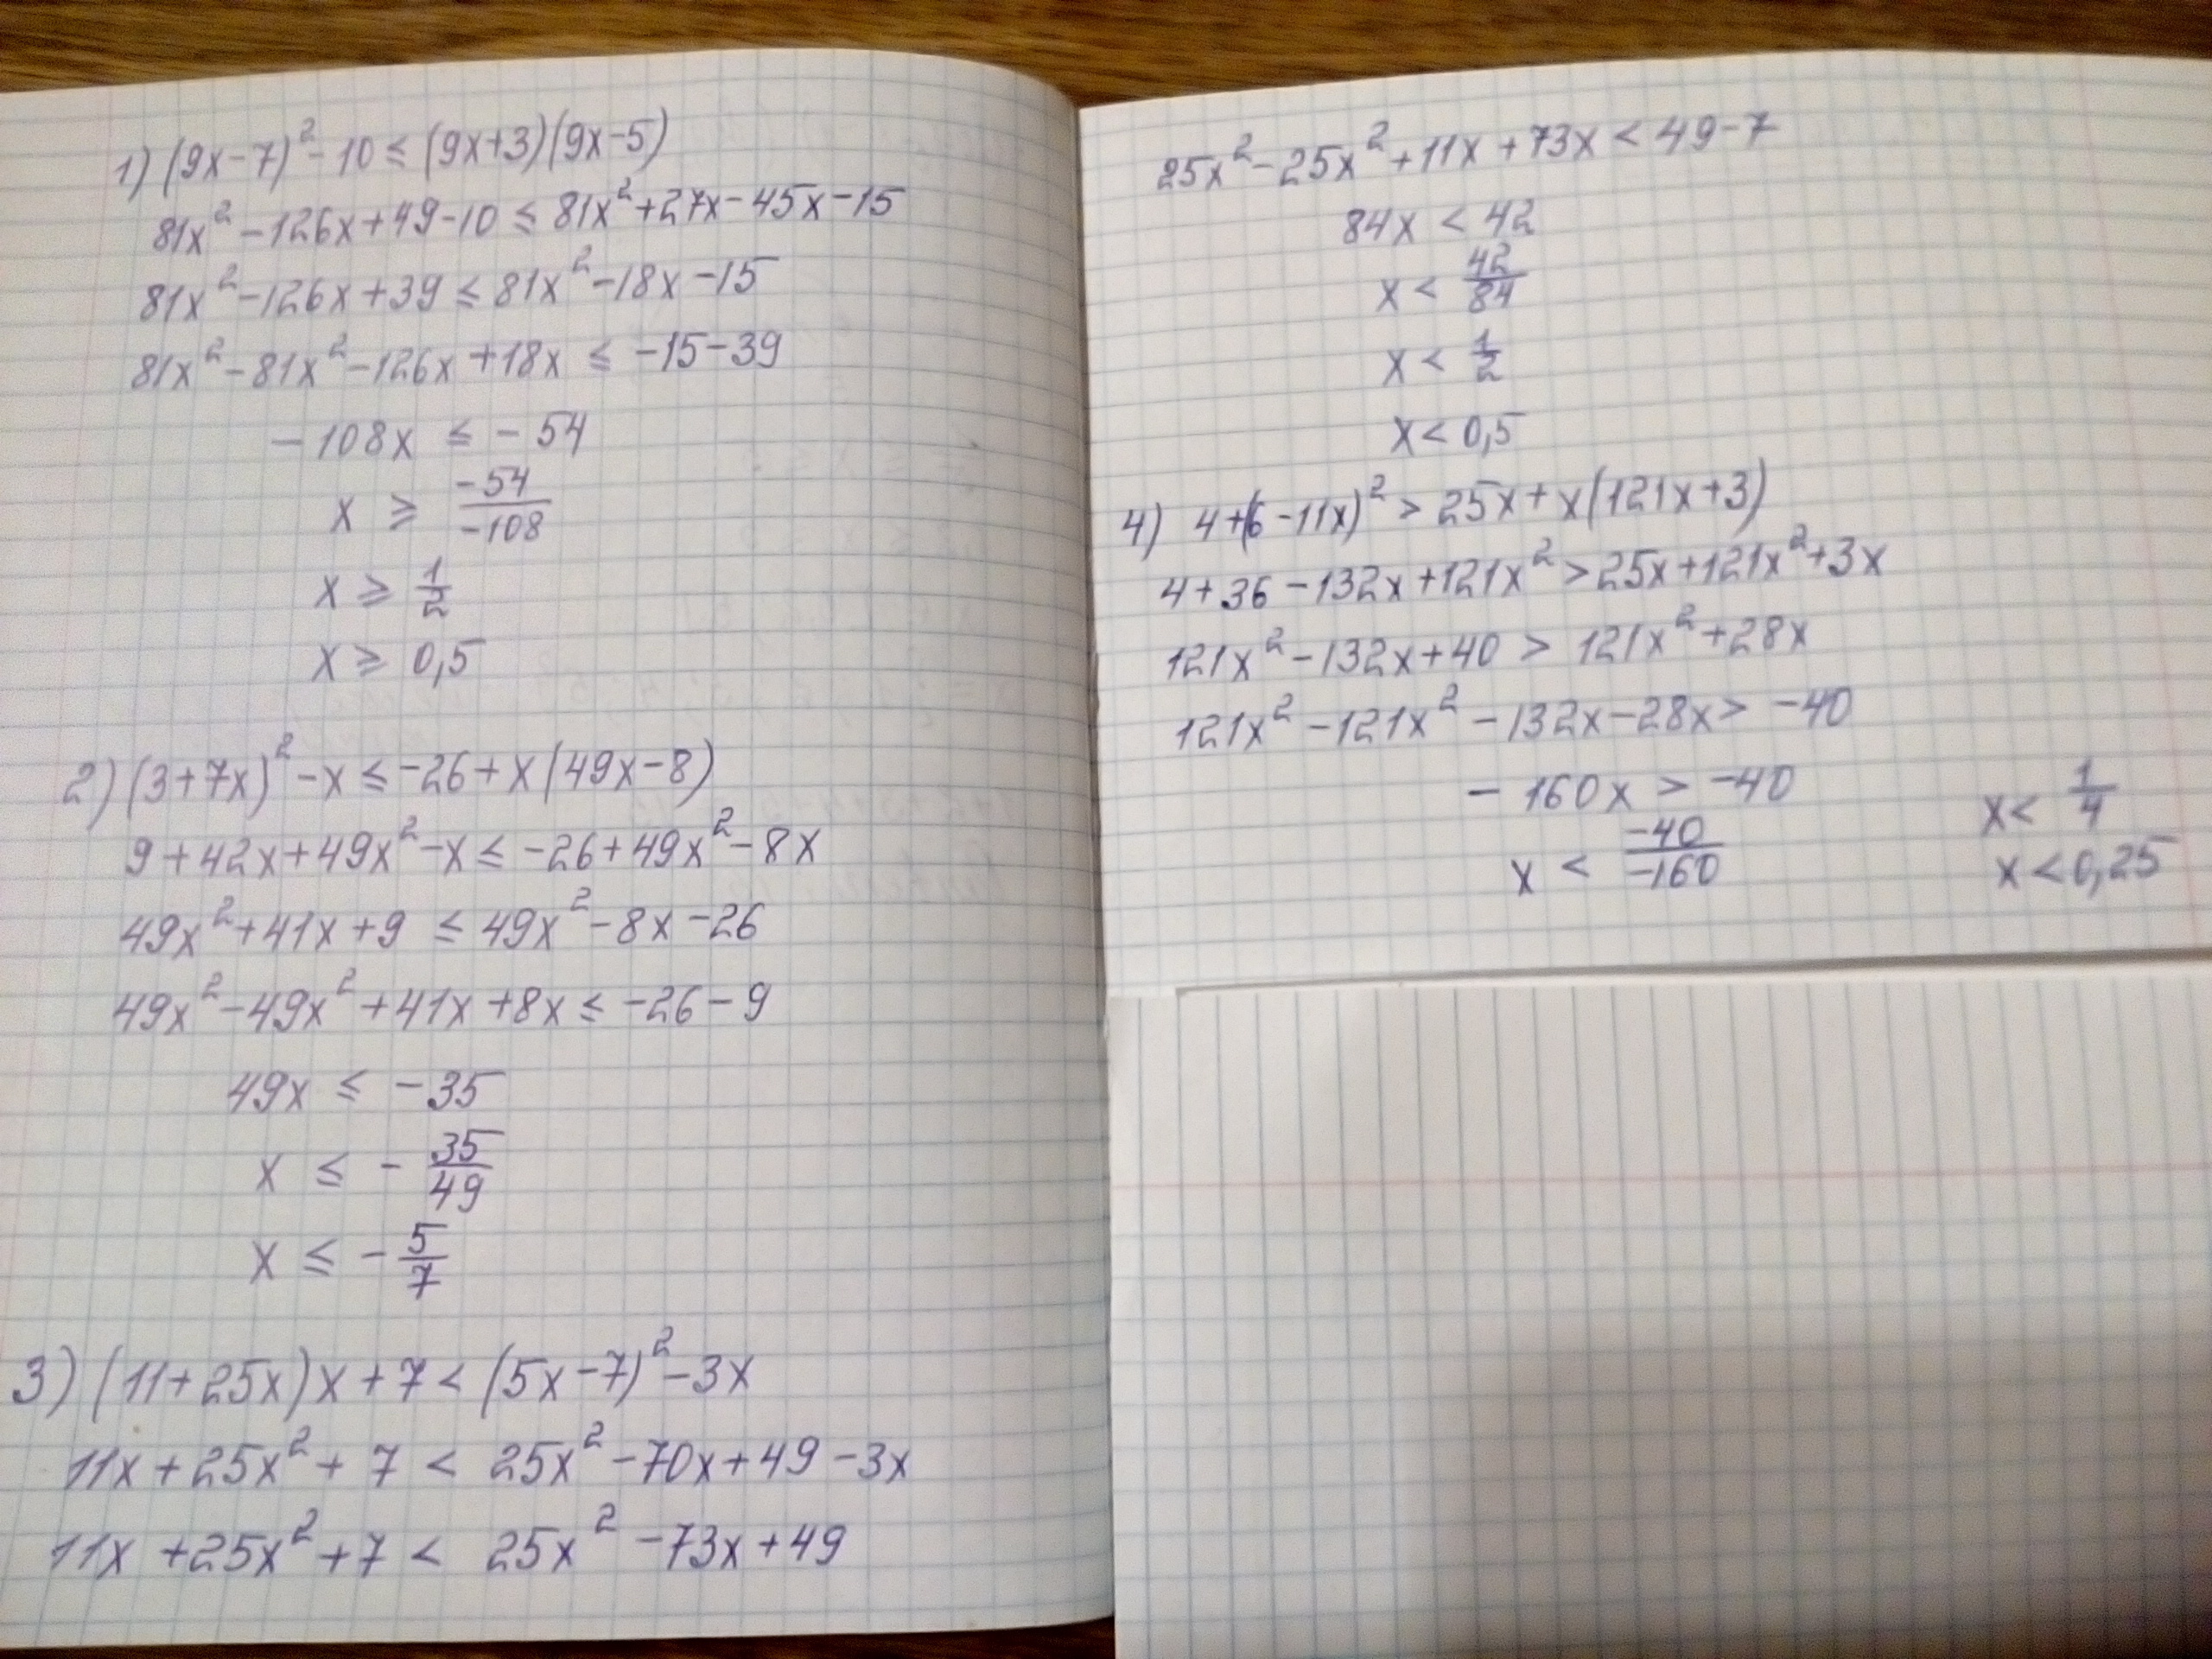 1) (9x-7)²-10≤(9x+3)(9x-5)
81x²-126x+49-10≤81x²+27x-45x-15
81x²-126x+39≤81x²-18x-15
81x²-81x²-126x+18x≤-15-39
-108x≤-54
x≥-54/-108
x≥1/2
x≥0,5
2) (3+7x)²-x≤-26+x(49x-8)
9+42x+49x²-x≤-26+49x²-8x
49x²+41x+9≤49x²-8x-26
49x²-49x²+41x+8x≤-26-9
49x≤-35
x≤-35/49
x≤-5/7
3) (11+25x)x+7<(5x-7)²-3x
11x+25x²+7<25x²-70x+49-3x
11x+25x²+7<25x²-73x+49
25x²-25x²+11x+73x<49-7
84x<42
x<42/84
x<1/2
x<0,5
4) 4+(6-11x)²>25x+x(121x+3)
4+36-132x+121x²>25x+121x²+3x
121x²-132x+40>121x²+28x
121x²-121x²-132x-28x>-40
-160x>-40
x<-40/-160
x<1/4
x<0,25